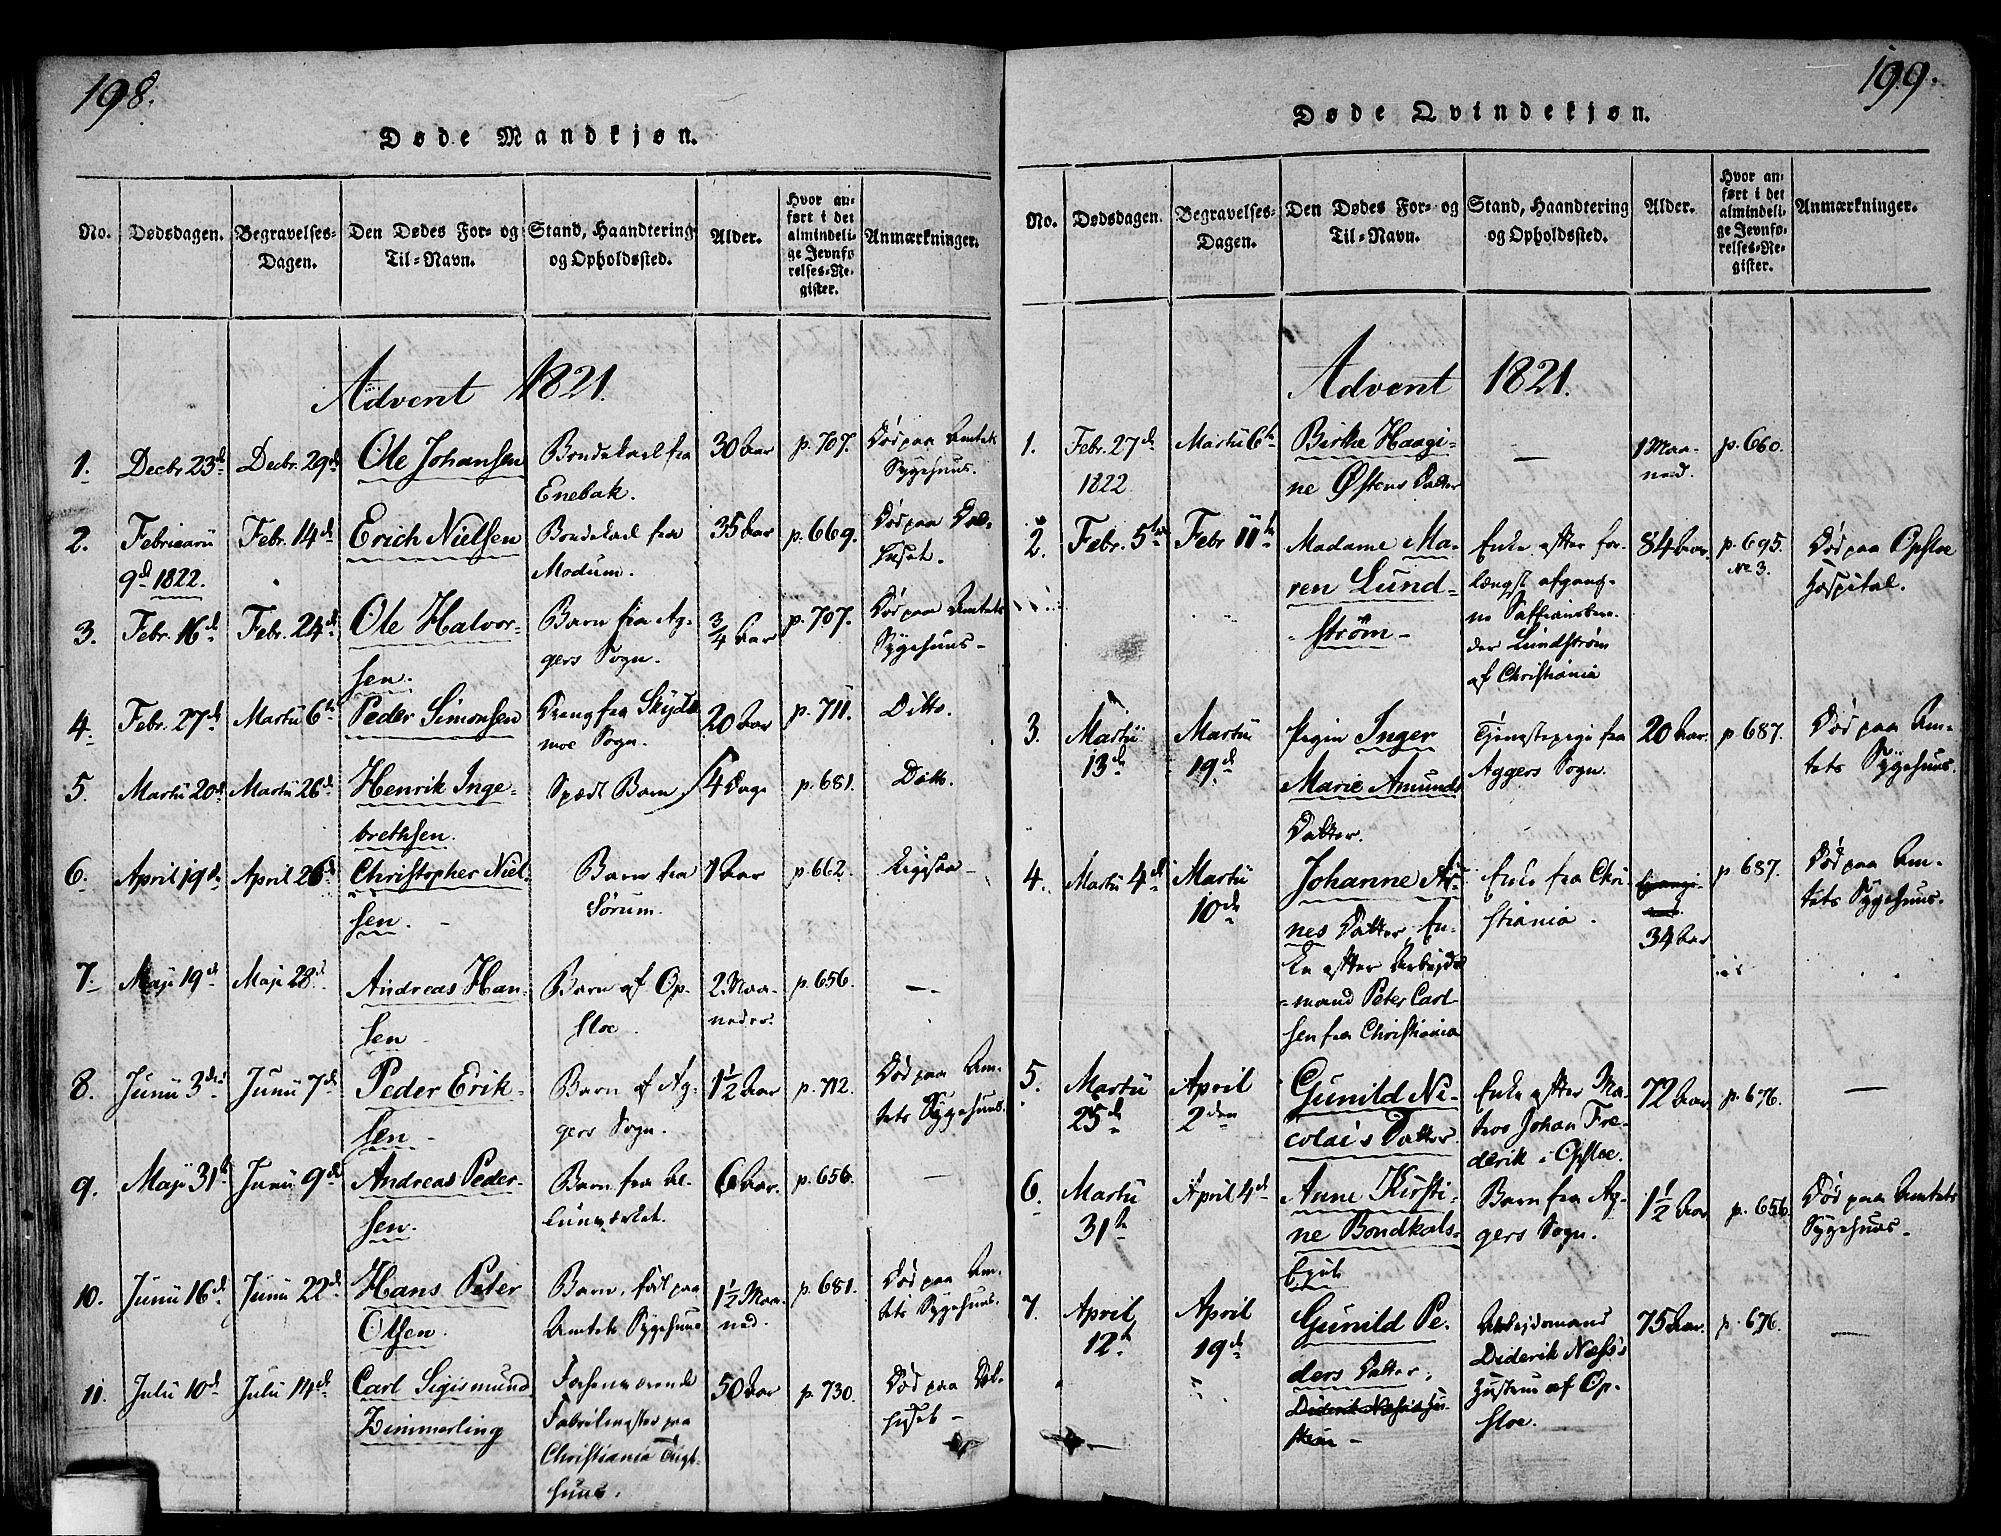 198.
Døde Mandkjøn.
No.
Dødsdagen.
Begravelses-
Dagen.
Den Dødes For- og
Til-Navn.
Stand, Haandtering
og Opholdssted.
Alder.
Hvor an-
ført i det
almindeli-
ge Jevnfø-
relses-Re-
gister.
Anmærkninger.
Advent 1821.
1.
Decbr. 23d
Decbr. 29d
Ole Johansen
Bondekarl fra
Enebak.
30 Aar
p. 707.
Død paa Amtets
Sygehuus.
2.
Februarii
9d 1822.
Febr. 14d
Erich Nielsen
Bondekarl fra
Modum.
35 Aar
p. 669.
Død paa Dol-
huset.
3.
Febr. 16d
Febr. 24d
Ole Halvor-
sen.
Barn fra Ag-
gers Sogn.
3/4 Aar
p. 707.
Død paa Amtets
Sygehuus-
4.
Febr. 27d
Martii 6te
Peder Simonsen
Dreng fra Skyds
moe Sogn.
20 Aar
p. 711.
Ditto.
5.
Martii 20d
Martii 26d
Henrik Inge-
brethsen.
Spædt Barn
4 Dage
p. 681.
Ditto.
6.
April 19d
April 26d
Christopher Niel-
sen. -
Barn fra
Sørum.
1 Aar
p. 662.
7.
Maji 19d
Maji 28d
Andreas Han-
sen
Barn af Op-
sloe
2. Maa-
neder.
p. 656.
-
8.
Junii 3die
Junii 7d
Peder Erik-
sen -
Barn af Ag-
gers Sogn.
1 1/2 Aar
p. 712.
Død paa Am-
tets Sygehuus.
9.
Maji 31te
Junii 9d
Andreas Peder-
sen.
Barn fra Al-
lunværket.
6 Aar.
p. 656.
-
10.
Junii 16d
Junii 22d
Hans Peter
Olsen.
Barn, født paa
Amtets Sygehuus
1 1/2 Maa-
ned.
p. 681.
Død paa Am-
tets Sygehuus.
11.
Julii 10d
Julii 14d
Carl Sigismund
Zimmerling
Forhenværende
Fabrikmester paa
Christiania Tugt-
huus.
50 Aar
p. 730.
Død paa Dol-
huset-
199.
Døde Qvindekjøn.
No.
Dødsdagen.
Begravelses-
Dagen.
Den Dødes For- og
Til-Navn.
Stand, Haandtering
og Opholdssted.
Alder.
Hvor an-
ført i det
almindeli-
ge Jevnfø-
relses-Re-
gister.
Anmærkninger.
Advent 1821.
1.
Febr. 27d
1822
Martii 6te
Birke Haagi-
ne Østens Datter
-
1 Maa-
ned.
p. 660.
2.
Febr. 5te
Febr 11te
Madame Ma-
ren Lund-
-strøm-
Enke efter for-
længst afgang-
ne
der Lundstrøm
af Christiania
84 Aar.
p. 695.
No 3.
Død paa Opsloe
Hospital.
3.
Martii
13d
Martii
19d
Pigen Inger
Marie Amunds
Datter.
Tjenestepige fra
Aggers Sogn.
20 Aar.
p 687.
Død paa Am-
tets Sygehuus.
4.
Martii 4d
Martii
10d
Johanne Ar-
nes Datter En-
ke efter Arbejds
-mand Peter Carl-
sen fra Christiania
Enke fra Chri-
stiania.
34 Aar
p 687.
Død paa Am-
tets Sygehuus.
5.
Martii
25d
April
2den
Gunild Ni-
colai's Datter
Enke efter Ma-
tros Johan Fre-
derik i Opsloe.
72 Aar
p. 676.
-
6.
Martii
31te
April 4d
Anne Kirsti-
ne Bondkals-
Barn fra Ag-
gers Sogn.
1 1/2 Aar
p. 656.
Død paa Amtets
Sygehuus-
7.
April
12te
April
19d
Gunild Pe-
ders Datter,
Diderik Næss's Hu-
strue -
Arbejdsmand
Diderik Næss's
Hustrue af Op-
sloe.
75 Aar.
p. 676.
-